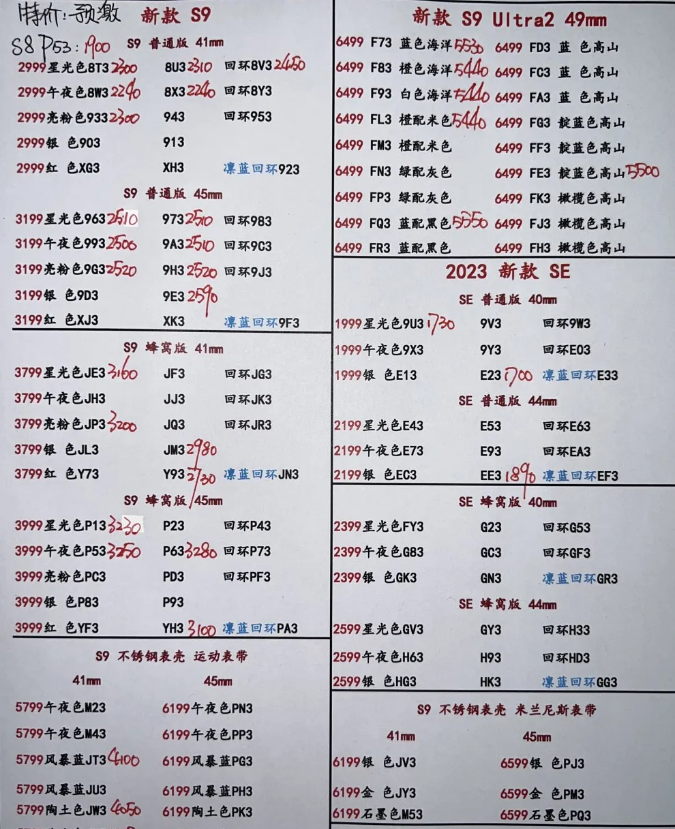 特价:预激
S8 P53:1900
新款 S9
S9 普通版 41mm
2999星光色8T3 2300 8U3 2310 回环8V3 2450
2999午夜色8W3 2240 8X3 2240 回环8Y3
2999亮粉色933 2300 943 回环953
2999银 色903 913
2999红 色XG3 XH3 凛蓝回环923
S9 普通版 45mm
3199星光色963 2510 973 2510 回环983
3199午夜色993 2500 9A3 2510 回环9C3
3199亮粉色9G3 2520 9H3 2520 回环9J3
3199银 色9D3 9E3 2590
3199红 色XJ3 XK3 凛蓝回环9F3
S9 蜂窝版 41mm
3799星光色JE3 3160 JF3 回环JG3
3799午夜色JH3 JJ3 回环JK3
3799亮粉色JP3 3200 JQ3 回环JR3
3799银 色JL3 JM3 2980
3799红 色Y73 Y93 2730 凛蓝回环JN3
S9 蜂窝版 45mm
3999星光色P13 3230 P23 回环P43
3999午夜色P53 3250 P63 3280 回环P73
3999亮粉色PC3 PD3 回环PF3
3999银 色P83 P93
3999红 色YF3 YH3 3100 凛蓝回环PA3
S9 不锈钢表壳 运动表带
41mm 45mm
5799午夜色M23 6199午夜色PN3
5799午夜色M43 6199午夜色PP3
5799风暴蓝JT3 4100 6199风暴蓝PG3
5799风暴蓝JU3 6199风暴蓝PH3
5799陶土色JW3 4050 6199陶土色PK3
新款 S9 Ultra2 49mm
6499 F73 蓝色海洋 5530 6499 FD3 蓝 色高山
6499 F83 橙色海洋 5440 6499 FC3 蓝 色高山
6499 F93 白色海洋 5440 6499 FA3 蓝 色高山
6499 FL3 橙配米色 5440 6499 FG3 靛蓝色高山
6499 FM3 橙配米色 6499 FF3 靛蓝色高山
6499 FN3 绿配灰色 6499 FE3 靛蓝色高山 5500
6499 FP3 绿配灰色 6499 FK3 橄榄色高山
6499 FQ3 蓝配黑色 5550 6499 FJ3 橄榄色高山
6499 FR3 蓝配黑色 6499 FH3 橄榄色高山
2023 新款 SE
SE 普通版 40mm
1999星光色9U3 1730 9V3 回环9W3
1999午夜色9X3 9Y3 回环E03
1999银 色E13 E23 1700 凛蓝回环E33
SE 普通版 44mm
2199星光色E43 E53 回环E63
2199午夜色E73 E93 回环EA3
2199银 色EC3 EE3 1890 凛蓝回环EF3
SE 蜂窝版 40mm
2399星光色FY3 G23 回环G53
2399午夜色G83 GC3 回环GF3
2399银 色GK3 GN3 凛蓝回环GR3
SE 蜂窝版 44mm
2599星光色GV3 GY3 回环H33
2599午夜色H63 H93 回环HD3
2599银 色HG3 HK3 凛蓝回环GG3
S9 不锈钢表壳 米兰尼斯表带
41mm 45mm
6199银 色JV3 6599银 色PJ3
6199金 色JY3 6599金 色PM3
6199石墨色M53 6599石墨色PQ3